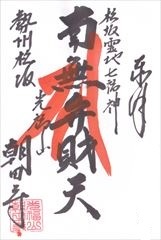 松坂霊地七福神
南無弁財天
光福山
勢州松坂
朝田寺